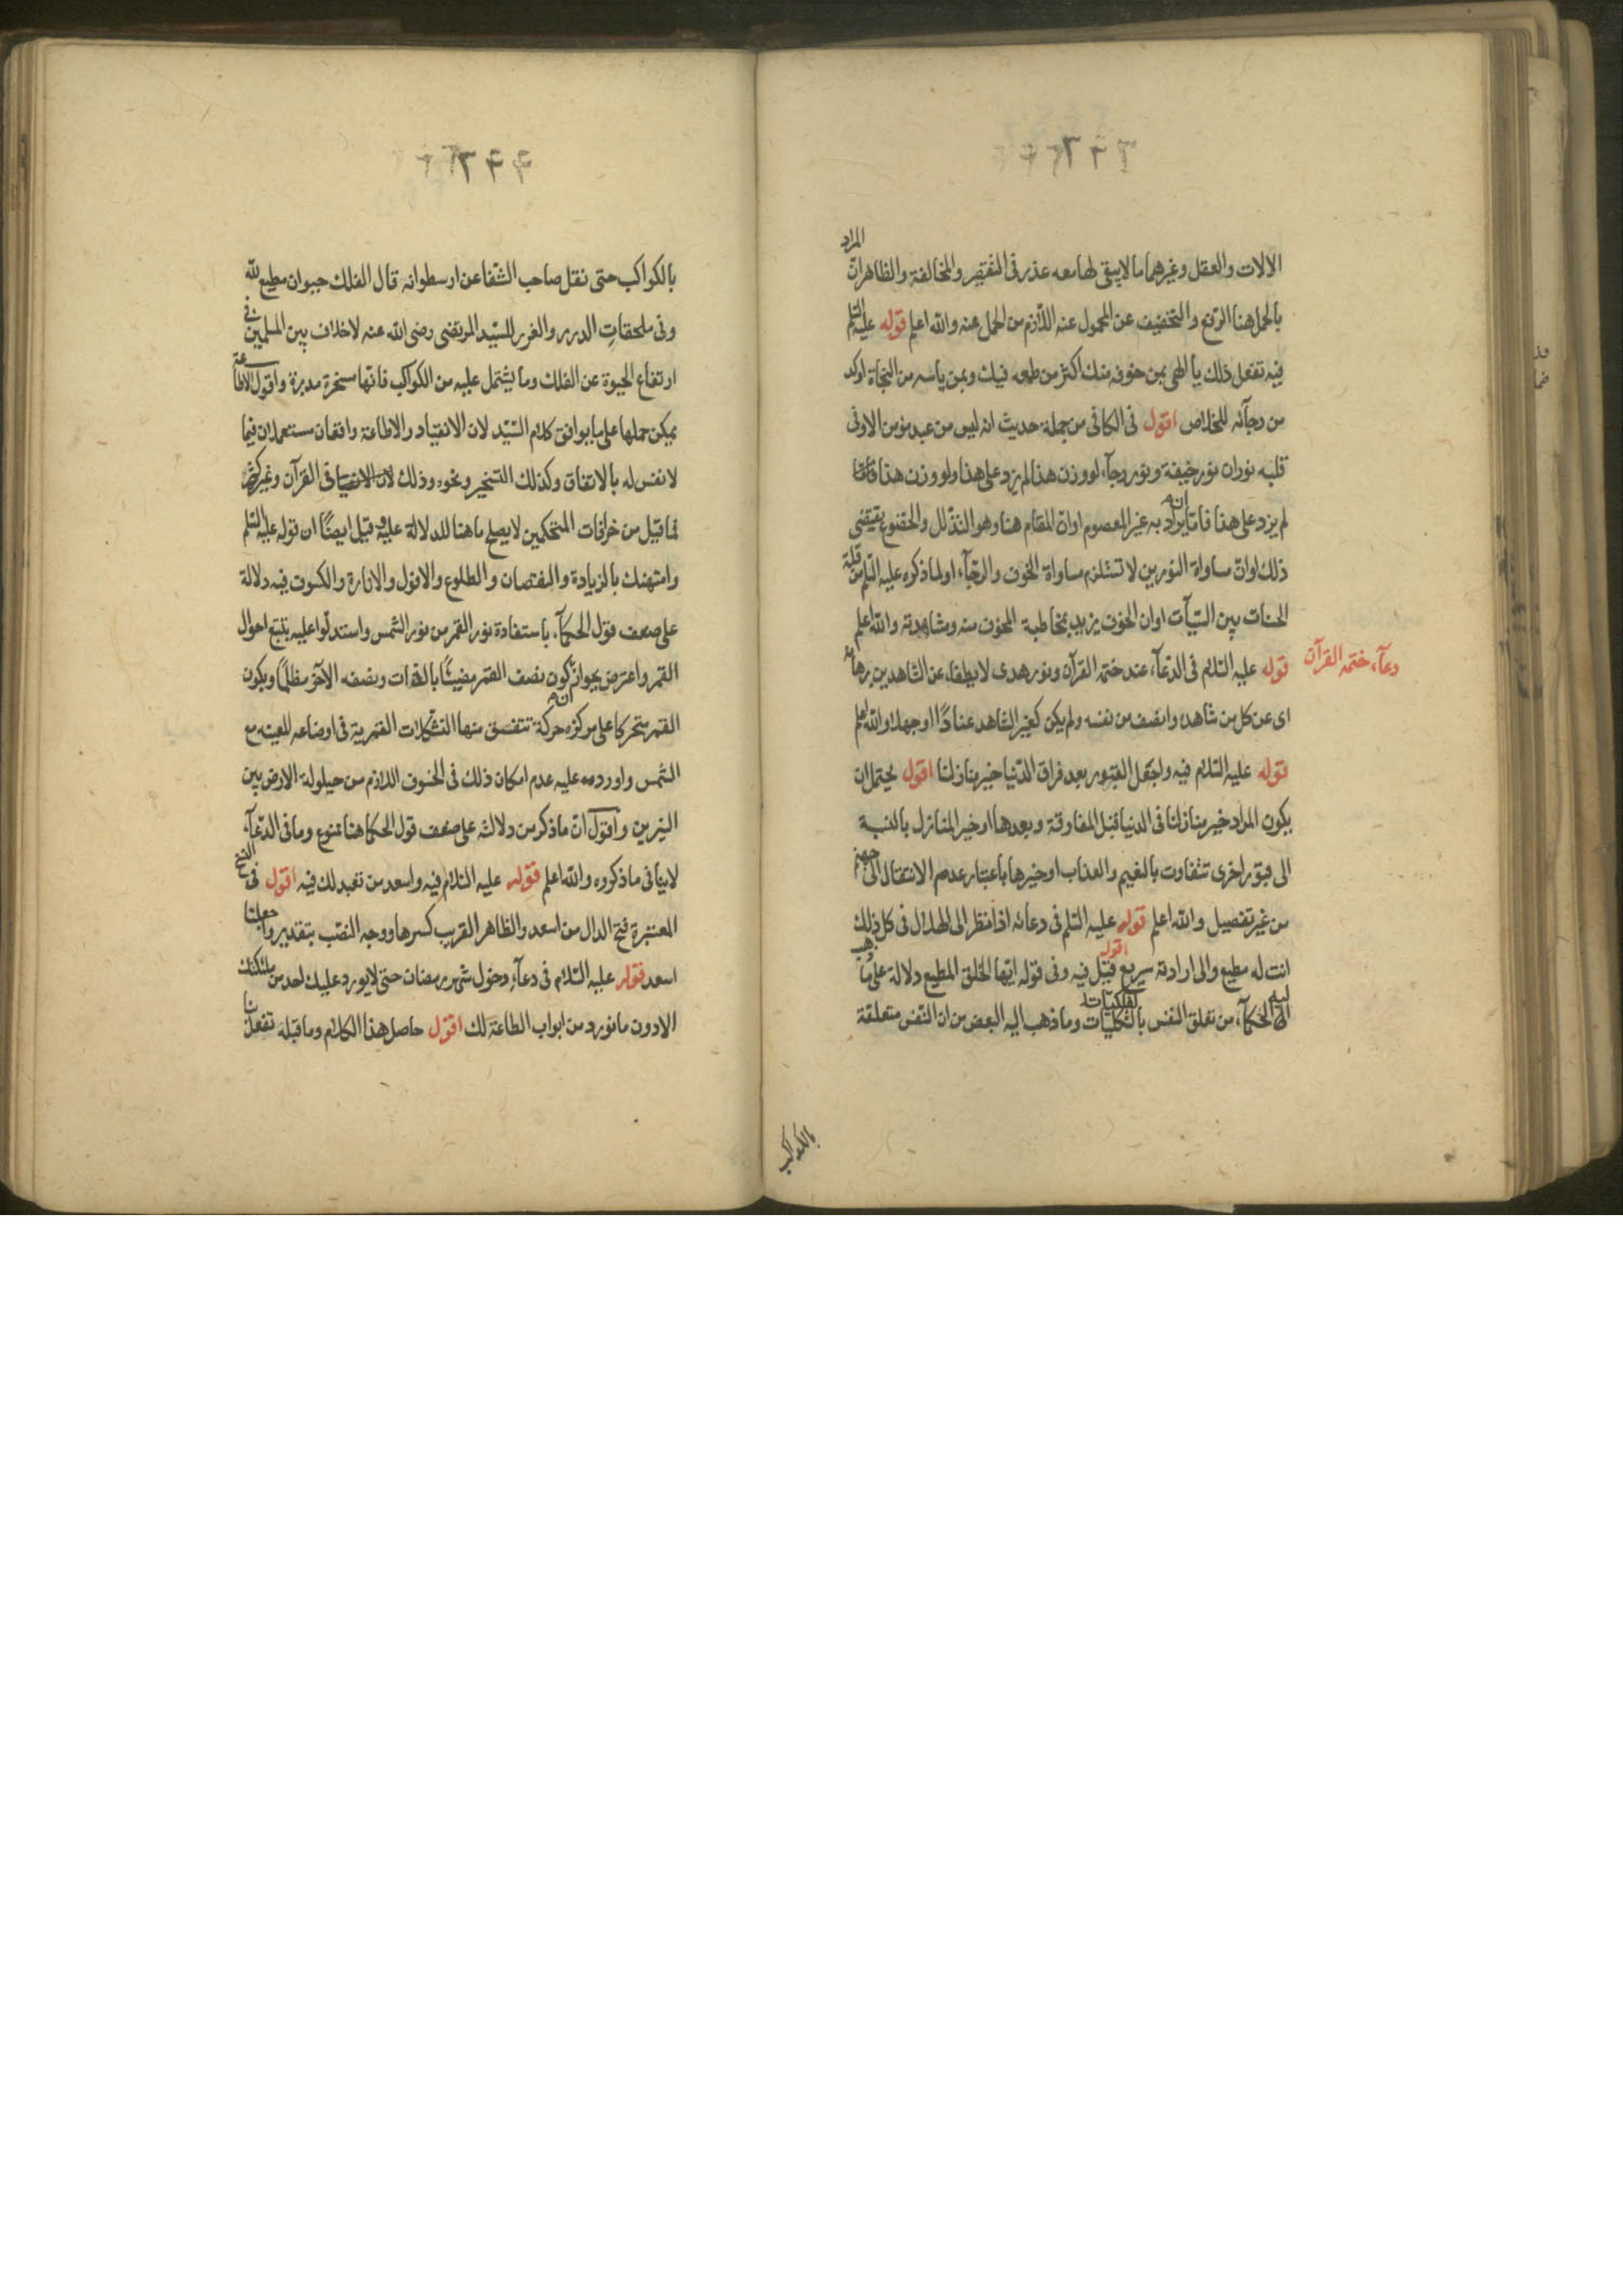 الالات والعقل وغيرهما مالايبقى لها معه عذر فى التقصير والمخالفة والظاهر ان المراد
بالحمل هنا الرفع والتخفيف عن المحمول عنه اللازم من الحمل عنه والله اعلم قوله عليه السلم
فيه تفعل ذلك يا الهى بمن خوفه منك اكثر من طمعه فيك وبمن ياسه من النجاة اوكد
من رجآئه للخلاص اقول فى الكافى من جملة حديث انه ليس من عبد مؤمن الا وفى
قلبه نوران نور خيفة ونور رجآء لو وزن هذا لم يزد على هذا ولو وزن هذا
لم يزد على هذا فاما انه يراد به غير المعصوم او ان المقام هنا وهو التذلل والخضوع يقتضى
ذلك او ان مساواة النورين لا تستلزم مساواة الخوف والرجآء او لما ذكره عليه السلم من قلة
الحسنات بين السيآت او ان الخوف يزيد بمخاطبة المخوف منه ومشاهدته والله اعلم
دعآء ختمه القرآن
قوله عليه السلام فى الدعآء عند ختمه القرآن ونور هدى لا يطفاء عن الشاهدين برهانه
اى عن كل من شاهده وانصف من نفسه ولم يكن كغير الشاهد عنادًا او جهلا والله اعلم
قوله عليه السلام فيه واجعل القبور بعد فراق الدنيا خير منازلنا اقول يحتمل ان
يكون المراد خير منازلنا فى الدنيا قبل المفارقة وبعدها او خير المنازل بالنسبة
الى قبور اخرى تتفاوت بالنعيم والعذاب او خيرها باعتبار عدم الانتقال الى جهنم
من غير تفصيل والله اعلم قوله عليه السلم فى دعائه اذا نظر الى الهلال فى كل ذلك
انت له مطيع والى ارادته سريع اقول قيل فيه وفى قوله ايها الخلق المطيع دلالة على ما ذهب
اليه الحكمآء من تعلق النفس بالفلكيات وما ذهب اليه البعض من ان النفس متعلقة
بالكواكب
بالكواكب حتى نقل صاحب الشفا عن ارسطو انه قال الفلك حيوان مطيع لله
وفى ملحقات الدرر والغرر للسيد المرتضى رضى الله عنه لا خلاف بين المسلمين فى
ارتفاع الحيوة عن الفلك وما يشتمل عليه من الكواكب فانها مسخرة مدبرة واقول الاطاعة
يمكن حملها على ما يوافق كلام السيد لان الانقياد والاطاعة واقعان مستعملان فيما
لا نفس له بالاتفاق وكذلك التسخير ونحوه وذلك فى القرآن وغيره كثير
فما قيل من خرافات المتحكمين لا يصلح ما هنا للدلالة عليه وقيل ايضًا ان قوله عليه السلم
وامتهنك بالزيادة والنقصان والطلوع والافول والانارة والكسوف فيه دلالة
على ضعف قول الحكمآء باستفادة نور القمر من نور الشمس واستدلوا عليه بتتبع احوال
القمر واعترض بجواز كون نصف القمر مضيئًا بالذات ونصفه الآخر مظلمًا ويكون
القمر متحركا على مركزه حركة تتفق منها التشكلات القمرية فى اوضاعه المعينه مع
الشمس واوردوا عليه عدم امكان ذلك فى الخسوف اللازم من حيلولة الارض بين
النيرين واقول ان ما ذكر من دلالته على ضعف قول الحكما هنا ممنوع وما فى الدعآء
لا ينافى ما ذكروه والله اعلم قوله عليه السلام فيه واسعد من تعبد لك فيه اقول فى النسخ
المعتبرة فتح الدال من اسعد والظاهر القريب كسرها ووجه النصب بتقدير واجعلنا
اسعد قوله عليه السلام فى دعآء دخول شهر رمضان حتى لا يورد عليك احد من ملئكتك
الا دون ما نورد من ابواب الطاعة لك اقول حاصل هذا الكلام وما قبله